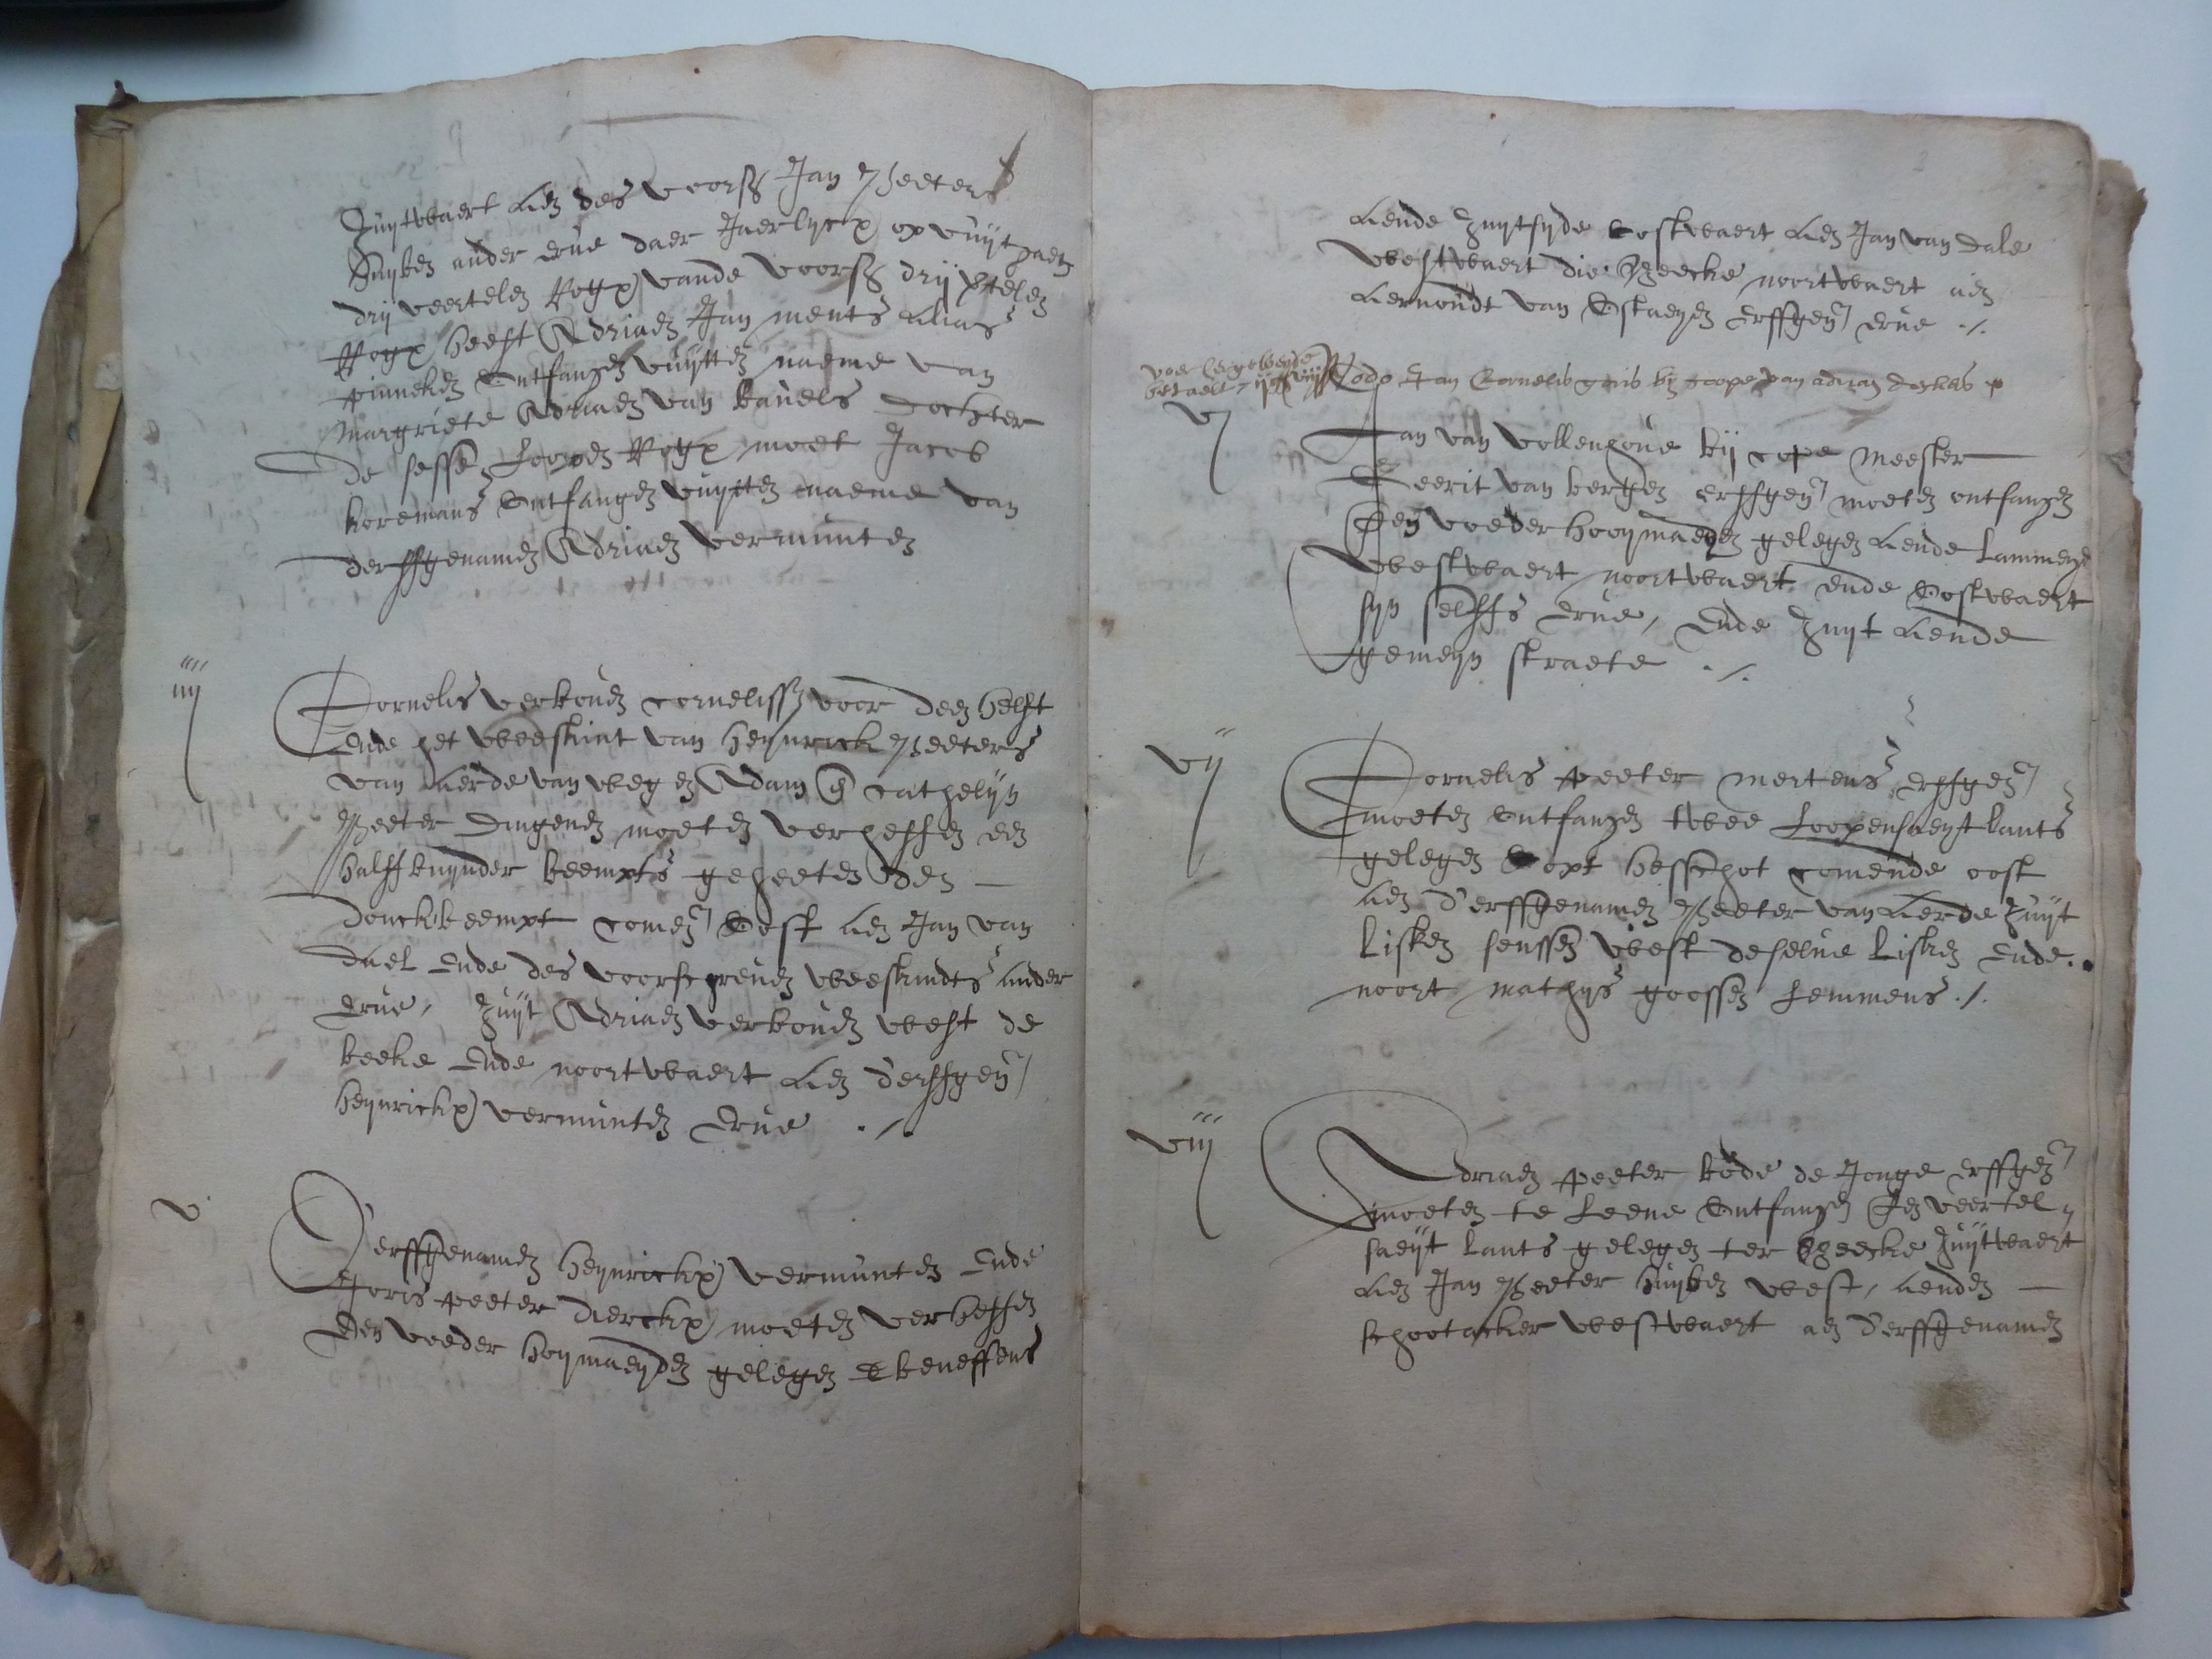 Zuytwaert aen des voors Jan Peeters
Huyben ander erve daer Jaerlycx op vuytgaen
drij veertelen Rogx vande voors drij veertelen
Rogx heeft Adriaen Jan ments Alias
pinneken Ontfangen vuytten naeme van
Margriete Adriaen van bavels dochter
de sesse Loopen Rogx moet Jacob
koremans Ontfangen vuytten naeme van
derffgenamen Adriaen vermunten
iiij
Cornelis verbouen cornelissen voor deen helft
Ende het weeskint van Heynrick Peeters
van Aerde van wegen Adam en cathelijn
Peeter Dingenen moeten verheffen een
halff buynder beempts geheeten den
donckbeempt comen Oost aen Jan van
Dael Ende des voorschreven weeskindts ander
Erve, Zuyt Adriaen verbouen west de
beeke Ende noortwaert aen d'erffgen
heynrickx vermunten Erve ./.
v
D'erffgenamen Heynrickx vermunten Ende
Joris peeter dierckx moeten verheffen
Een voeder hoymaeyden gelegen beneffens
Aende Zuytsyde oostwaert aen Jan van Dale
westwaert die Beecke noortwaert aen
Aernoudt van Ostaeyen Erffgen Erve ./.
voer
betaelt
Jan Cornelis by coope van adriaen
vj
Jan van vollenhove bij cope Meester
Geerit van bergen erffgen moeten ontfangen
Een voeder hooymaeden gelegen Aende Lammeys
westwaert noortwaert ende Oostwaert
syn selffs Erve, Ende Zuyt Aende
gemeyn straete ./.
vij
Cornelis peeter mertens erffgen
moeten Ontfangen twee Loopensaeyt lants
gelegen opt hesschot comende oost
aen d'erffgenamen Peeter van Aerde Zuyt
Lisken senssen west deselve Lisken Ende
noort mathys goossen Lemmens ./.
viij
Adriaen peeter bode de Jonge erffgen
moeten te Leene Ontfangen Een veertel
saeyt lants gelegen ter Beecke Zuytwaert
aen Jan Peeter Huyben west, aenden
schootacker westwaert aen d'erffgenamen